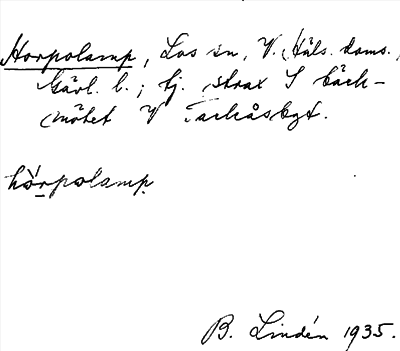 Horpolamp, Los sn, V. Häls. doms.,
Gävl. l.; tj. strax S bäck-
mötet V Tackåsbgt.
hòrpolamp
B. Lindén 1935.